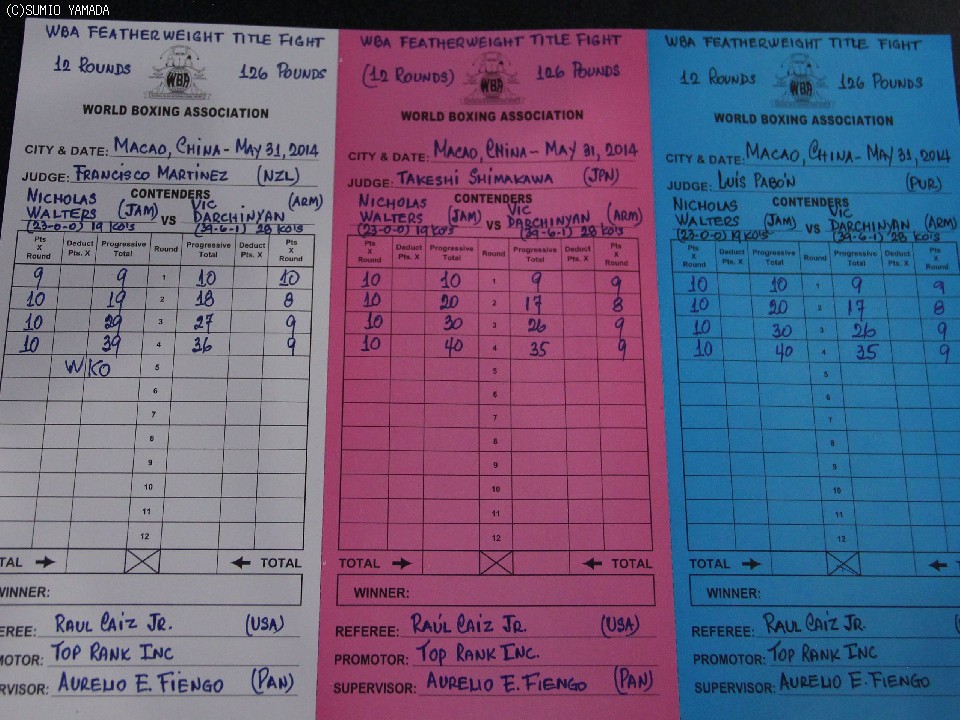 (C)SUMIO YAMADA
WBA FEATHERWEIGHT TITLE FIGHT
12 ROUNDS 126 POUNDS
WBA
WORLD BOXING ASSOCIATION
CITY & DATE: MACAO, CHINA - MAY 31, 2014
JUDGE: FRANCISCO MARTINEZ (NZL)
CONTENDERS
NICHOLAS WALTERS (JAM) VS VIC DARCHINYAN (ARM)
(23-0-0) 19 KO'S (39-6-1) 28 KO'S
Pts X Round Deduct Pts. X Progressive Total Round Progressive Total Deduct Pts. X Pts X Round
9 9 1 10 10
10 19 2 18 8
10 29 3 27 9
10 39 4 36 9
W/KO 5
6
7
8
9
10
11
12
TOTAL TOTAL
WINNER:
EREE: RAUL CAIZ JR. (USA)
MOTOR: TOP RANK INC
RVISOR: AURELIO E. FIENGO (PAN)
WBA FEATHERWEIGHT TITLE FIGHT
(12 ROUNDS) 126 POUNDS
WBA
WORLD BOXING ASSOCIATION
CITY & DATE: MACAO, CHINA - MAY 31, 2014
JUDGE: TAKESHI SHIMAKAWA (JPN)
CONTENDERS
NICHOLAS WALTERS (JAM) VS VIC DARCHINYAN (ARM)
(23-0-0) 19 KO'S (39-6-1) 28 KO'S
Pts X Round Deduct Pts. X Progressive Total Round Progressive Total Deduct Pts. X Pts X Round
10 10 1 9 9
10 20 2 17 8
10 30 3 26 9
10 40 4 35 9
5
6
7
8
9
10
11
12
TOTAL TOTAL
WINNER:
REFEREE: RAÚL CAIZ JR. (USA)
PROMOTOR: TOP RANK INC.
SUPERVISOR: AURELIO E. FIENGO (PAN)
WBA FEATHERWEIGHT TITLE FIGHT
12 ROUNDS 126 POUNDS
WBA
WORLD BOXING ASSOCIATION
CITY & DATE: MACAO, CHINA - MAY 31, 2014
JUDGE: LUIS PABÓN (PUR)
CONTENDERS
NICHOLAS WALTERS (JAM) VS VIC DARCHINYAN (ARM)
(23-0-0) 19 KO'S (39-6-1) 28 KO'S
Pts X Round Deduct Pts. X Progressive Total Round Progressive Total Deduct Pts. X Pts X Round
10 10 1 9 9
10 20 2 17 8
10 30 3 26 9
10 40 4 35 9
5
6
7
8
9
10
11
12
TOTAL
WINNER:
REFEREE: RAUL CAIZ JR.
PROMOTOR: TOP RANK INC
SUPERVISOR: AURELIO E. FIENGO